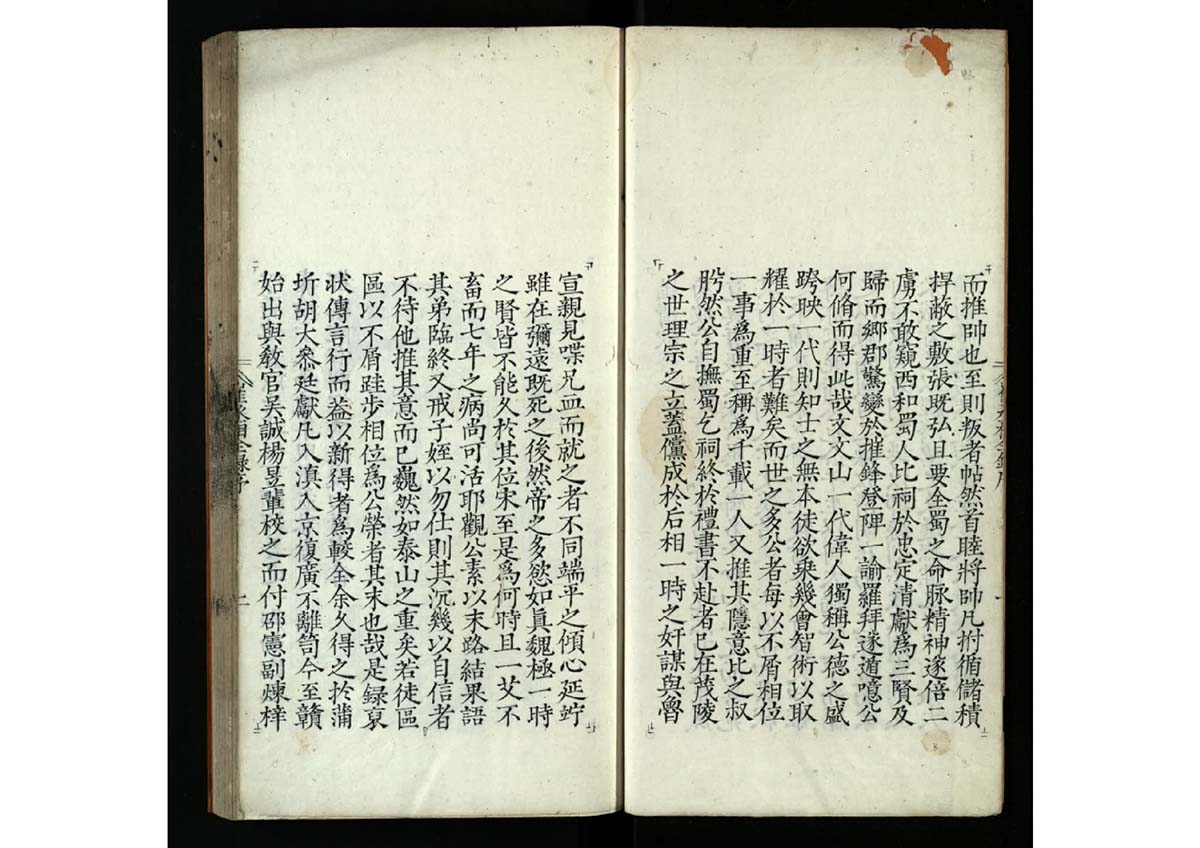 而推帥也至則叛者帖然首睦將帥凡拊循儲積
捍蔽之敷張既弘且要全蜀之命脉精神遂倍二
虜不敢窺西和蜀人比祠於忠定清獻為三賢及
歸而鄉郡驚變於摧鋒登陴一諭羅拜遂遁噫公
何脩而得此哉文文山一代偉人獨稱公德之盛
跨映一代則知士之無本徒欲乘幾會智術以取
耀於一時者難矣而世之多公者每以不屑相位
一事為重至稱為千載一人又推其隱意比之叔
肹然公自撫蜀乞祠終於禮書不赴者已在茂陵
之世理宗之立蓋儻成於后相一時之奸謀與魯
宣親見喋兄血而就之者不同端平之傾心延竚
雖在彌遠既死之後然帝之多慾如真魏極一時
之賢皆不能久於其位宋至是為何時且一艾不
畜而七年之病尚可活耶觀公素以末路結果語
其弟臨終又戒子姪以勿仕則其沉幾以自信者
不待他推其意而已巍然如泰山之重矣若徒區
區以不屑跬步相位為公榮者其末也哉是録裒
狀傳言行而益以新得者為較全余久得之於蒲
圻胡大叅廷獻凡入滇入京復廣不離笥今至贛
始出與教官吳誠楊昱輩校之而付邵憲副煉梓